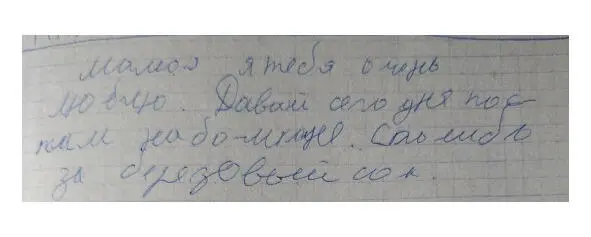 мамоя я тебя очень
люблю. Давай сего дня пос-
там на бо-мтще. Спосибо
за березовый сок.